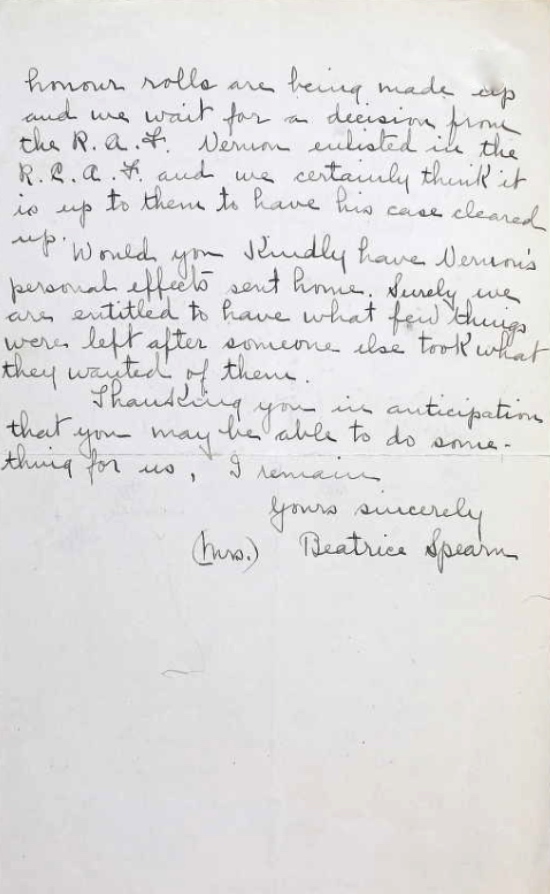 honour rolls are being made up
and we wait for a decision from
the R.A.F. Vernon enlisted in the
R.C.A.F. and we certainly think it
is up to them to have his case cleared
up.
Would you Kindly have Vernon's
personal effects sent home. Surely we
are entitled to have what few things
were left after someone else took what
they wanted of them.
Thanking you in anticipation
that you may be able to do some-
thing for us, I remain
Yours sincerely
(Mrs.) Beatrice Spearn